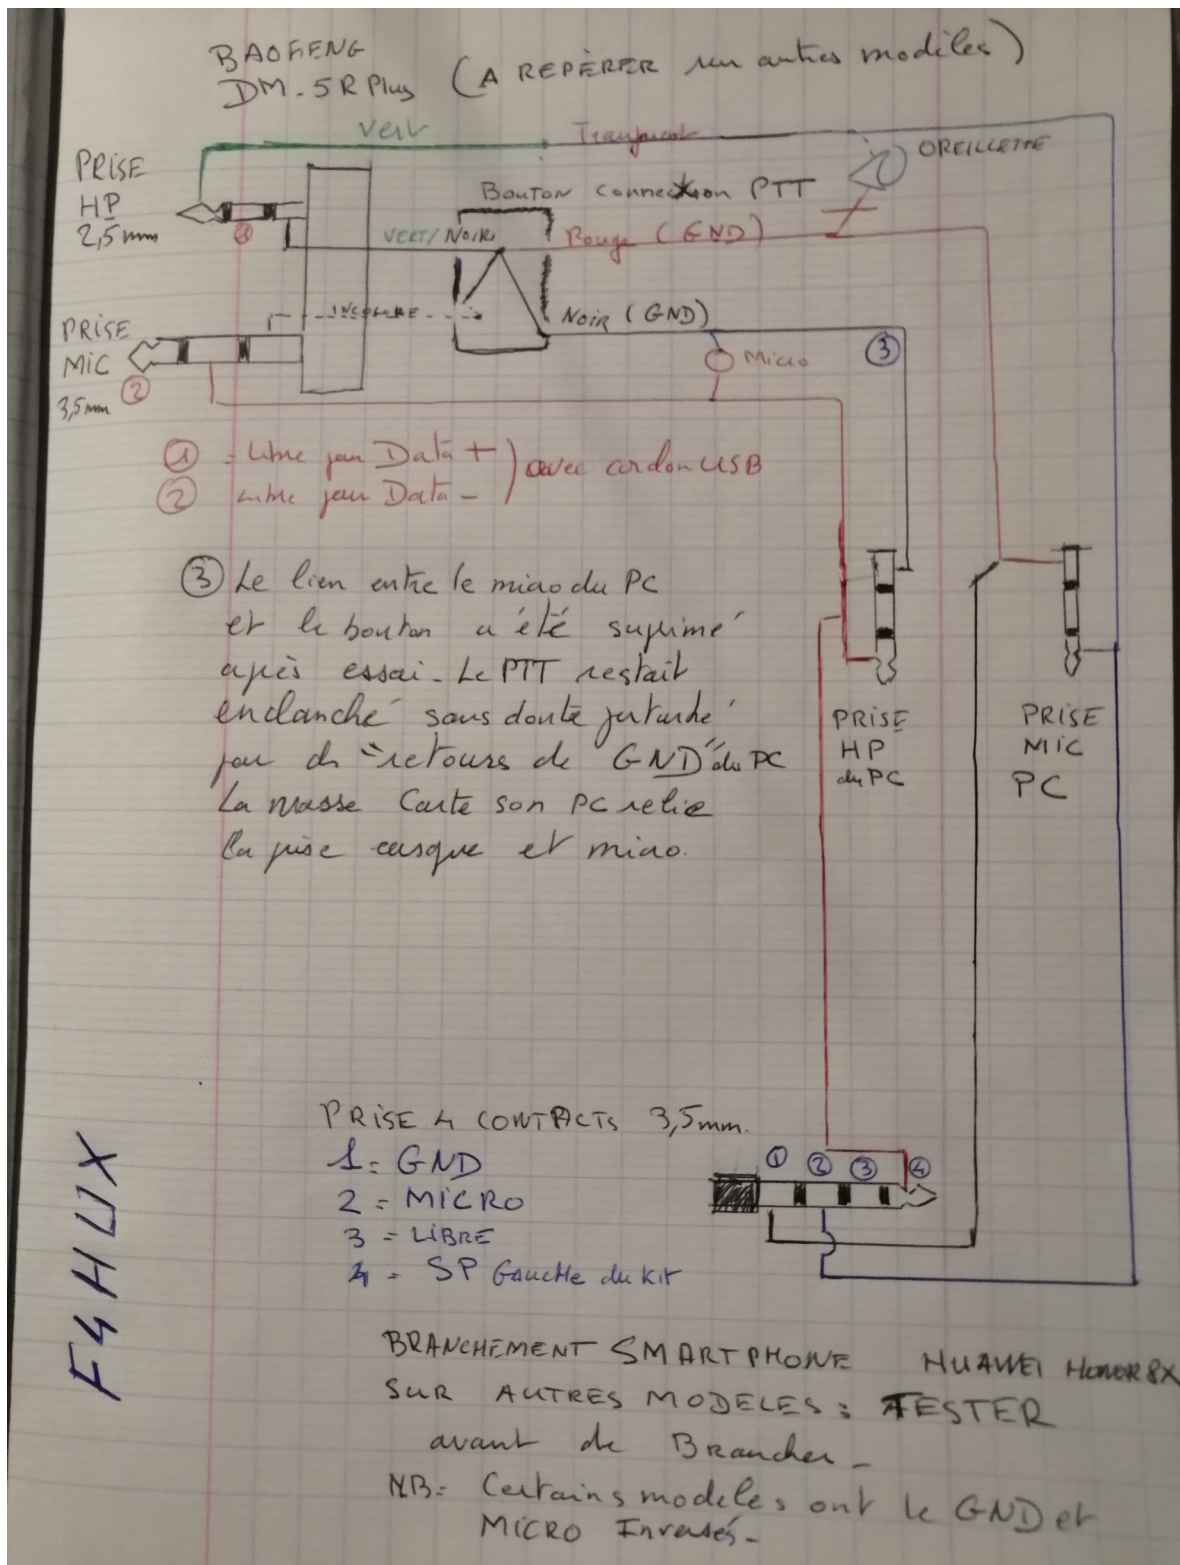 BAOFENG
DM-5R Plus (A REPÈRER sur autres modèles)
Vert
Transparent
OREILLETTE
PRISE
HP
2,5mm
1
Bouton connexion PTT
VERT/NOIR
Rouge (GND)
INCOLORE
Noir (GND)
PRISE
MIC
3,5mm
2
Micro
3
1 = Libre pour Data +
2 Libre pour Data -
) avec cordon USB
3 Le lien entre le micro du PC
et le bouton a été suprimé
après essai. Le PTT restait
enclanché sans doute perturbé
par ds "retours de GND" du PC
La masse Carte son PC relie
la prise casque et micro.
PRISE
HP
du PC
PRISE
MIC
PC
PRISE 4 CONTACTS 3,5mm.
1 = GND
2 = MICRO
3 = LIBRE
4 = SP Gauche du kit
1 2 3 4
F4HUX
BRANCHEMENT SMARTPHONE HUAWEI HONOR 8X
SUR AUTRES MODELES : TESTER
avant de Brancher -
NB = Certains modeles ont le GND et
MICRO Inversés -